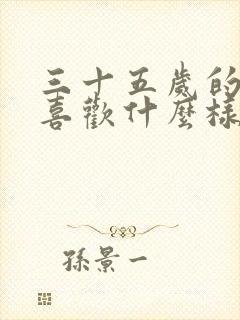 三十五歲的
喜歡什麼樣
孫景一